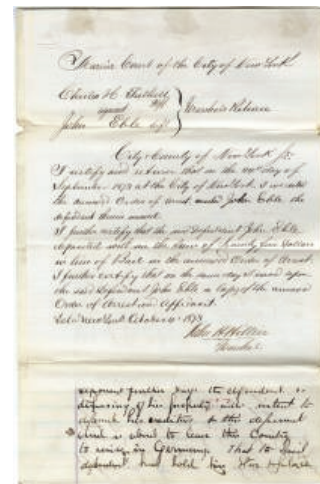 Marine Court of the City of New York
Charles H.
against
John Eble Deft
Marshal's Return
City & County of New York Ss.
I certify and return that on the day of
September 1873 at the City of New York I executed
the annexed Order of arrest John Eble the
defendant therein named.
I further certify that the said defendant John Eble
deposited with me the Sum of Dollars
in lieu of Bail in the annexed Order of Arrest.
I further certify that on the same day I served upon
the said Defendant John Eble a Copy of the annexed
Order of Arrest and Affidavit.
Dated New York October 1873
John H
Marshal
deponent further says the defendant is
disposing of his property with intent to
defraud his creditors & the defendant
is about to leave this Country
to reside in Germany. That to
defendant